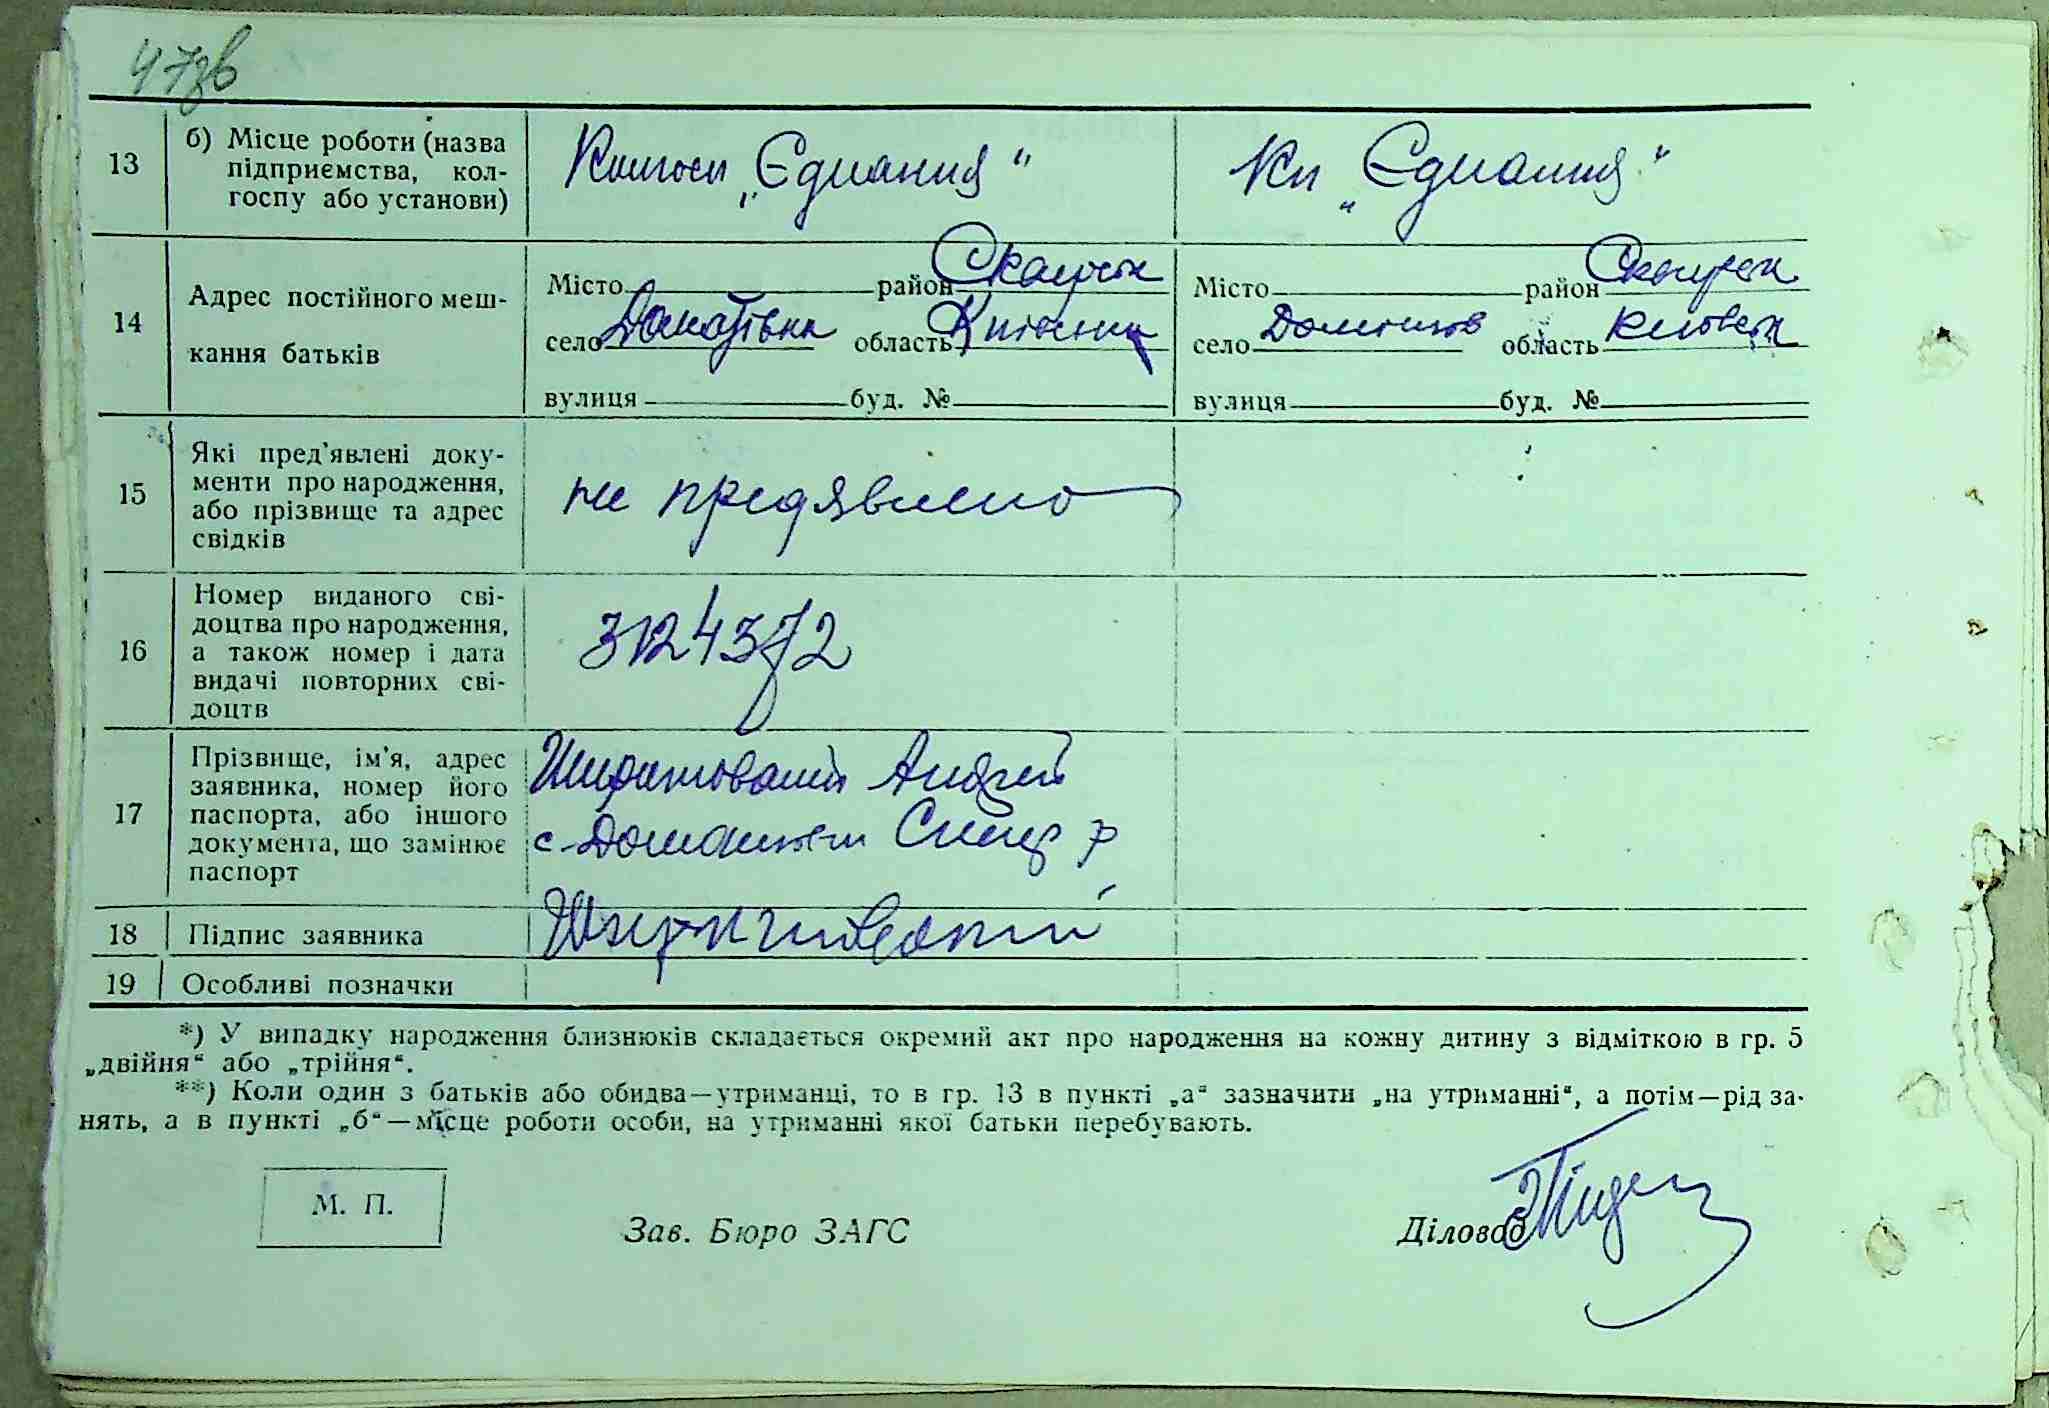 47зв
13
б) Місце роботи (назва
підприємства, кол-
госпу або установи)
Колгосп „Єднання“
Кп „Єднання“
14
Адрес постійного меш-
кання батьків
Місто район Сквирськ
село область Київська
вулиця буд. №
Місто район Сквирськ
село область Київськ
вулиця буд. №
15
Які пред’явлені доку-
менти про народження,
або прізвище та адрес
свідків
не предявлено
16
Номер виданого сві-
доцтва про народження,
а також номер і дата
видачі повторних сві-
доцтв
3124372
17
Прізвище, ім’я, адрес
заявника, номер його
паспорта, або іншого
документа, що замінює
паспорт
Андрей
с. р
18
Підпис заявника
19
Особливі позначки
*) У випадку народження близнюків складається окремий акт про народження на кожну дитину з відміткою в гр. 5
„двійня“ або „трійня“.
**) Коли один з батьків або обидва—утриманці, то в гр. 13 в пункті „а“ зазначити „на утриманні“, а потім—рід за-
нять, а в пункті „б“—місце роботи особи, на утриманні якої батьки перебувають.
М. П.
Зав. Бюро ЗАГС
Діловод